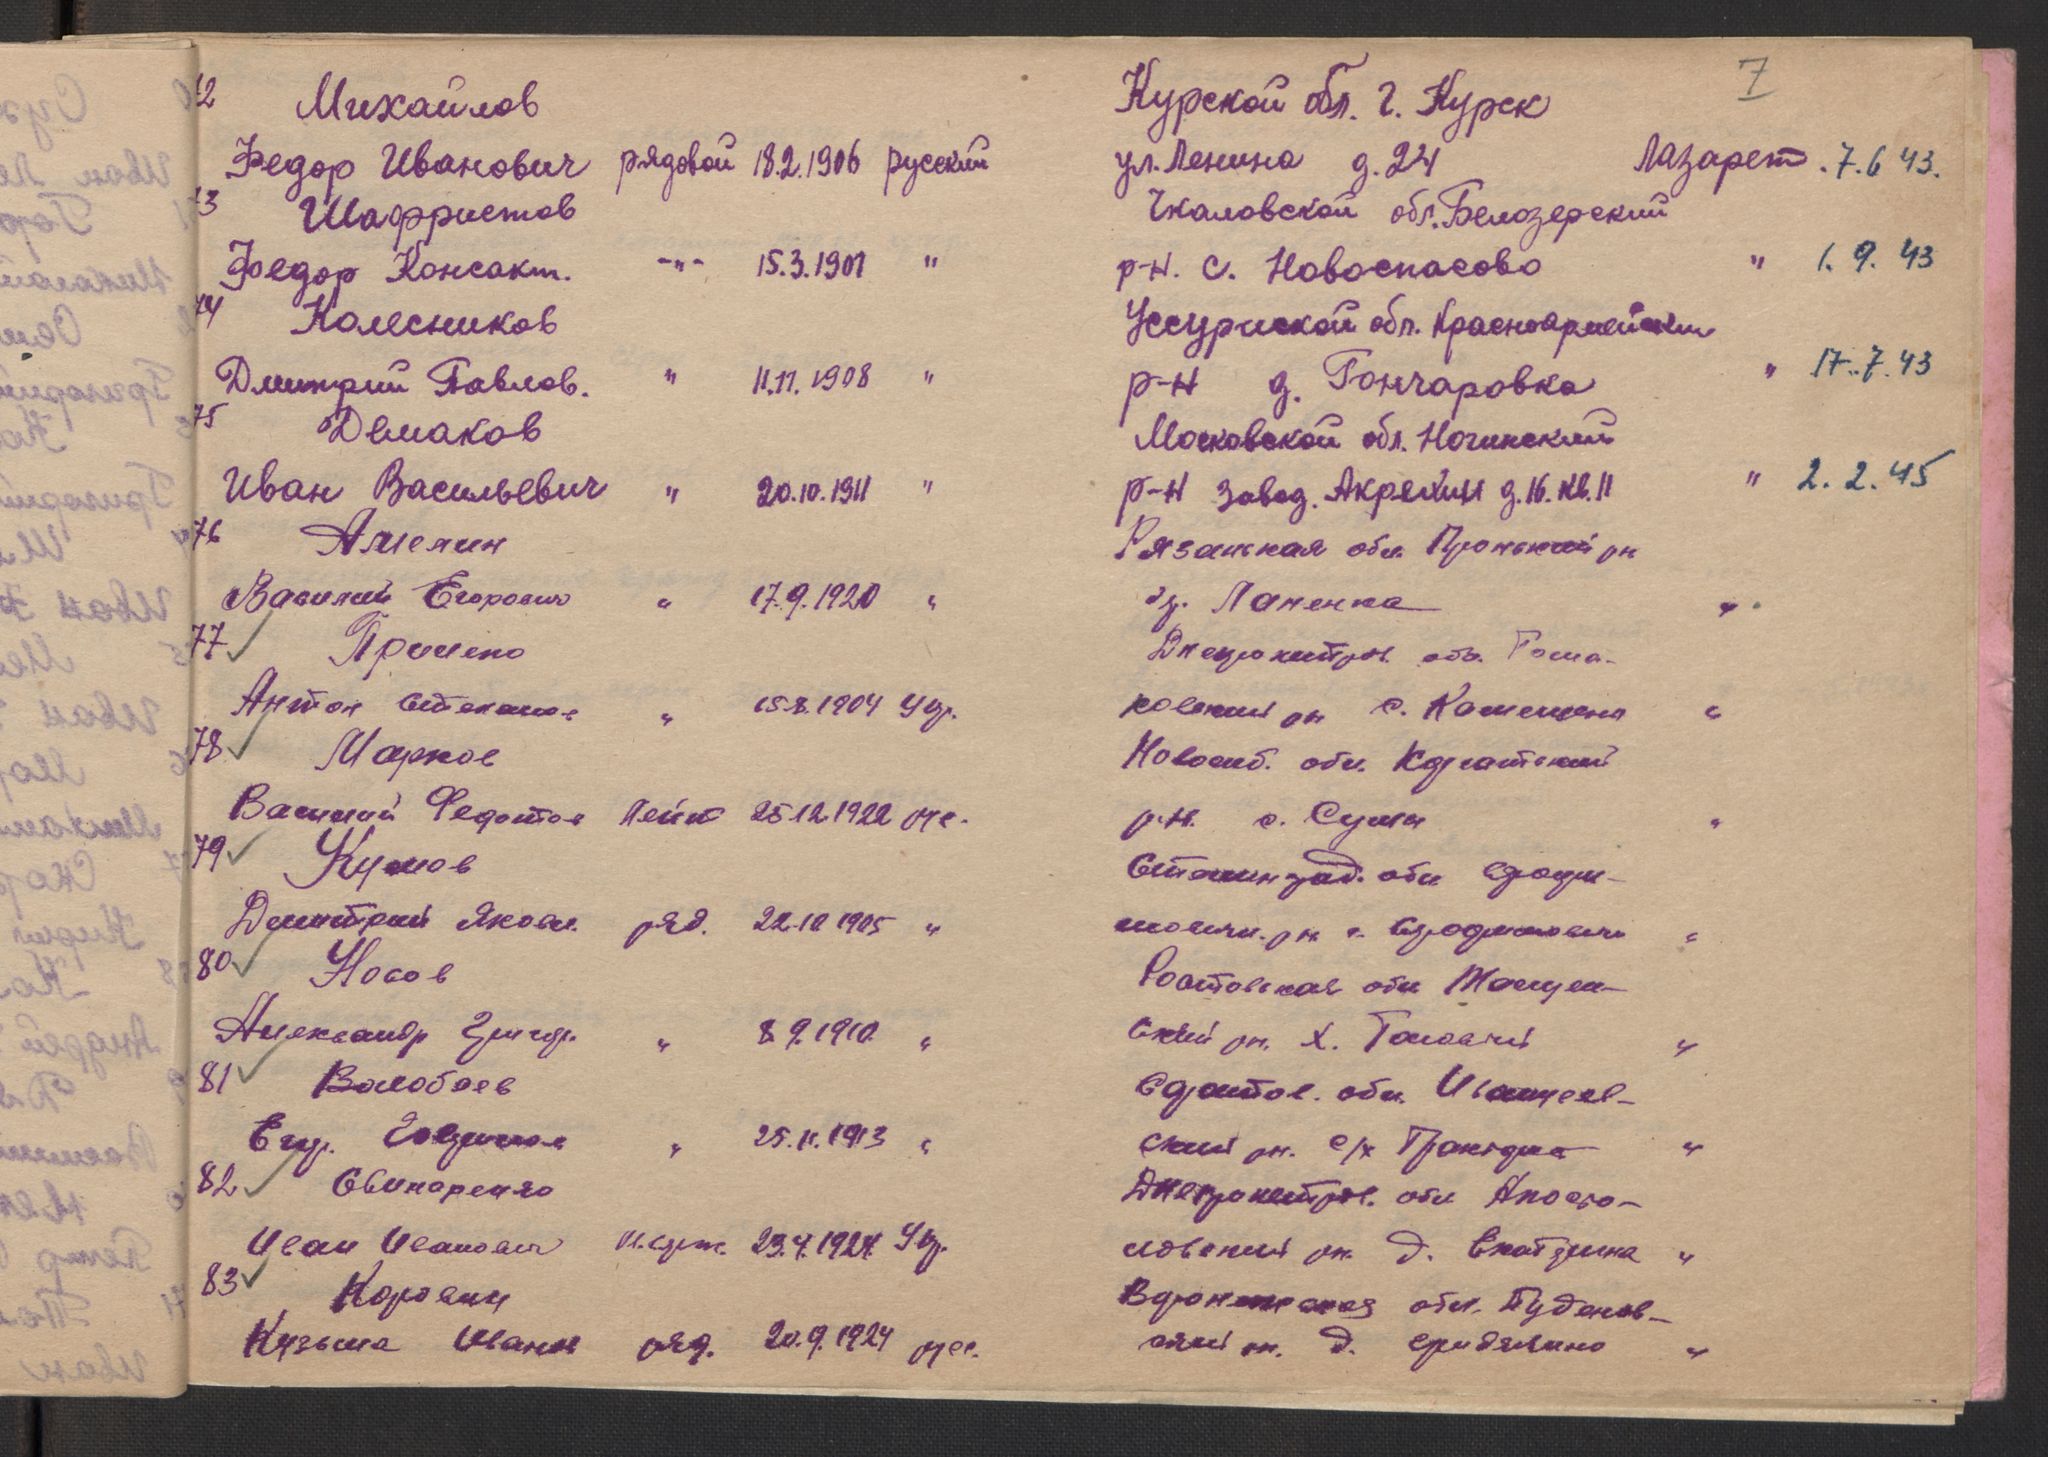 7
72 Михайлов Курской обл. г. Курск
Федор Иванович рядовой 18.2.1906 русский ул. Ленина д. 24 Лазарет . 7.6 43.
73 Шафристов Чкаловской обл. Белозерский
Федор Консакт. -"- 15.3.1901 " р-н. с. Новоспасово " 1. 9. 43
74 Колесников Уссурийской обл. Красноармейский
Дмитрий Павлов. " 11.11.1908 " р-н д. Гончаровка " 17.7.43
75 Демаков Московской обл. Ногинский
Иван Васильевич " 20.10.1911 " р-н завод. Акрихин д. 16. кв. 11 " 2. 2. 45
76 Амелин Рязанская обл. Пронский рн
Василий Егорович " 17.9.1920 " " 
77 Днепропетров. обл. Тома-
Антон " 15.8.1904 Укр. ковский рн с. "
78 Марков Новосиб. обл. Каргатский
Василий Федотов Лейт 25.12.1922 рус. р.н. с. Сума "
79 Кумов Сталинград. обл
Дмитрий Яковл. ряд. 22.10 1905 " рн. "
80 Носов Ростовская обл
Александр Григор. " 8 9.1910. " ский рн. х. "
81 Волобоев обл. Ивантеев-
Егор. " 25.11.1913 " ский рн. с/х "
82 Свинаренко Днепропетров. обл Апосто-
Иван Иванович 23.4.1924 Укр. ловский рн. д. "
83 Коровин обл. Буденов-
Кузьма Иван ряд. 20.9.1924 рус. ский рн. д. "